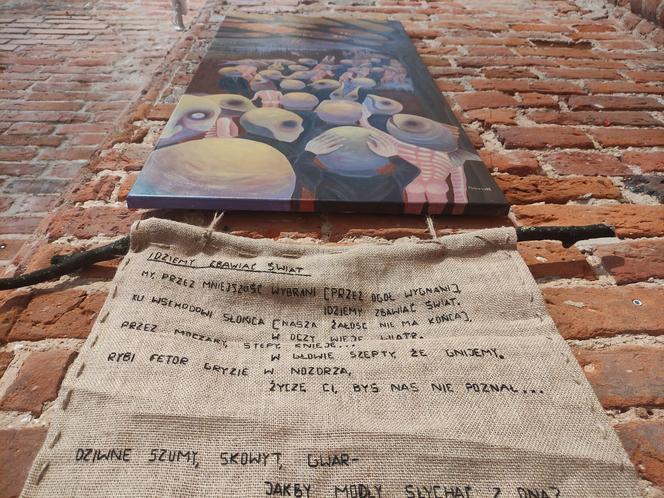 IDZIEMY ZBAWIAĆ ŚWIAT
MY, PRZEZ MNIEJSZOŚĆ WYBRANI [PRZEZ OGÓŁ WYGNANI],
IDZIEMY ZBAWIAĆ ŚWIAT.
KU WSCHODOWI SŁOŃCA [NASZA ŻAŁOŚĆ NIE MA KOŃCA],
W OCZY WIEJE WIATR.
PRZEZ MOCZARY, STEPY, KNIEJE...
W GŁOWIE SZEPTY, ŻE GNIJEMY.
RYBI FETOR GRYZIE W NOZDRZA,
ŻYCZĘ CI, BYŚ NAS NIE POZNAŁ...
DZIWNE SZUMY, SKOWYT, GWAR-
JAKBY MODŁY SŁYCHAĆ Z DNA?